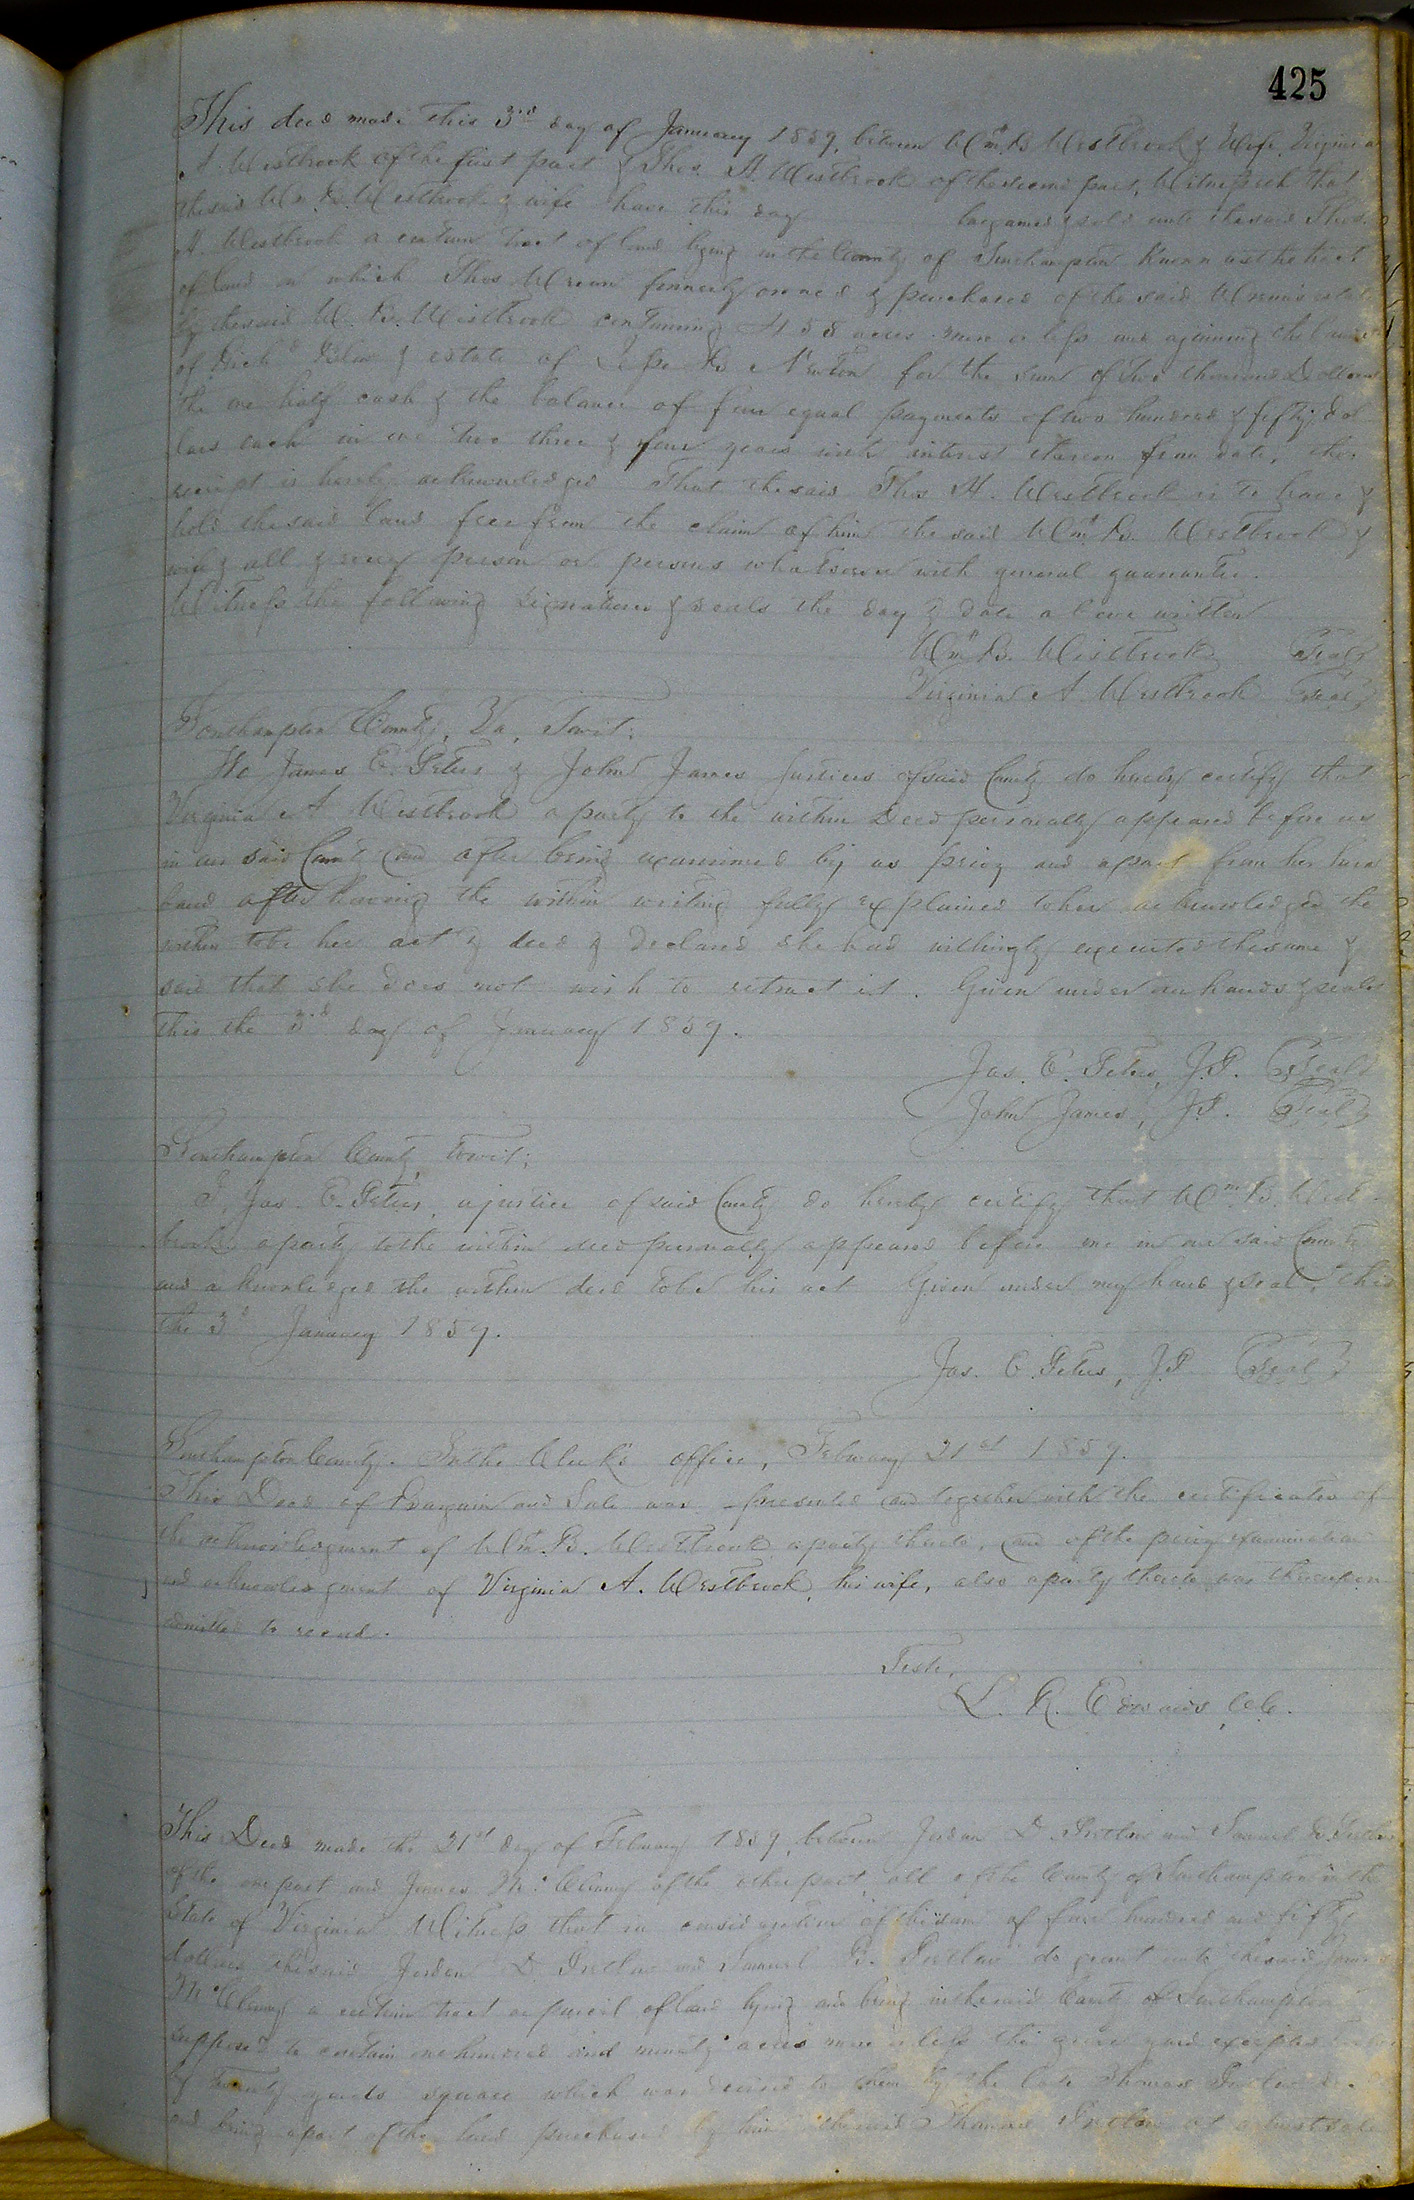 425
This deed made this 3rd day of January 1859, between Wm. B. Westbrook & Wife Virginia
A. Westbrook of the first part & Thos. H. Westbrook of the second part, Witnesseth that
the said Wm. B. Westbrook & wife have this day bargained & sold unto the said Thos.
H. Westbrook a certain tract of land lying in the County of Southampton known as the tract
of land on which Thos. Wrenn formerly owned & purchased of the said Wrenn's estate
by the said W. B. Westbrook containing acres more or less and ajoining the lands
of & estate of Jesse B Newton for the sum of two thousand Dollars
the one half cash & the balance of four equal payments of two hundred & fifty dol
lars each in one two three & four years with interest thereon from date, the
receipt is hereby acknowledged That the said Thos H. Westbrook is to have &
hold the said land free from the claim of him the said Wm. B. Westbrook &
wife & all & every person or persons whatsoever with general guarantee.
Witness the following signatures & seals the day & date above written
Wm. B. Westbrook Seal
Virginia A. Westbrook Seal
Southampton County, Va, Towit:
We James E. Peters & John James Justices of said County do hereby certify that
Virginia A Westbrook a party to the within Deed personally appeared before us
in our said County and after being examined by us privy and apart from her hus
band after having the within writing fully explained to her acknowledged the
within to be her act & deed & declared she had willingly executed the same &
said that she does not wish to retract it. Given under our hands & seals
this the 3rd day of January 1859.
Jas. E. Peters, J.P. Seal
John James, J.P. Seal
Southampton County, towit:
I, Jas. E. Peters, a justice of said County do hereby certify that Wm. B. West-
brook, a party to the within deed personally appeared before me in our said County
and acknowledged the within deed to be his act Given under my hand & seal, this
the 3d January 1859.
Jas. E. Peters, J.P. Seal
Southampton County. In the Clerk's office, February 21st 1859.
This Deed of Bargain and Sale was presented and together with the certificates of
the acknowledgment of Wm. B. Westbrook a party thereto, and of the privy examination
and acknowledgment of Virginia A. Westbrook, his wife, also a party thereto was thereupon
admitted to record.
Teste,
L. R. Edwards, C.C.
This Deed made the 21st day of February 1859, between Jordan D. Pretlow and Samuel B. Pretlow
of the one part and James McClenny of the other part, all of the County of Southampton in the
State of Virginia Witness that in consideration of the sum of four hundred and fifty
dollars the said Jordan D. Pretlow and Samuel B. Pretlow do grant unto the said James
McClenny a certain tract or parcel of land lying and being in the said County of Southampton
supposed to contain one hundred and ninety acres more or less the grave yard excepted
of twenty yards square which was devised to them by the late Thomas Pretlow
and being a part of the land purchased by him the said Thomas Pretlow at a trust sale